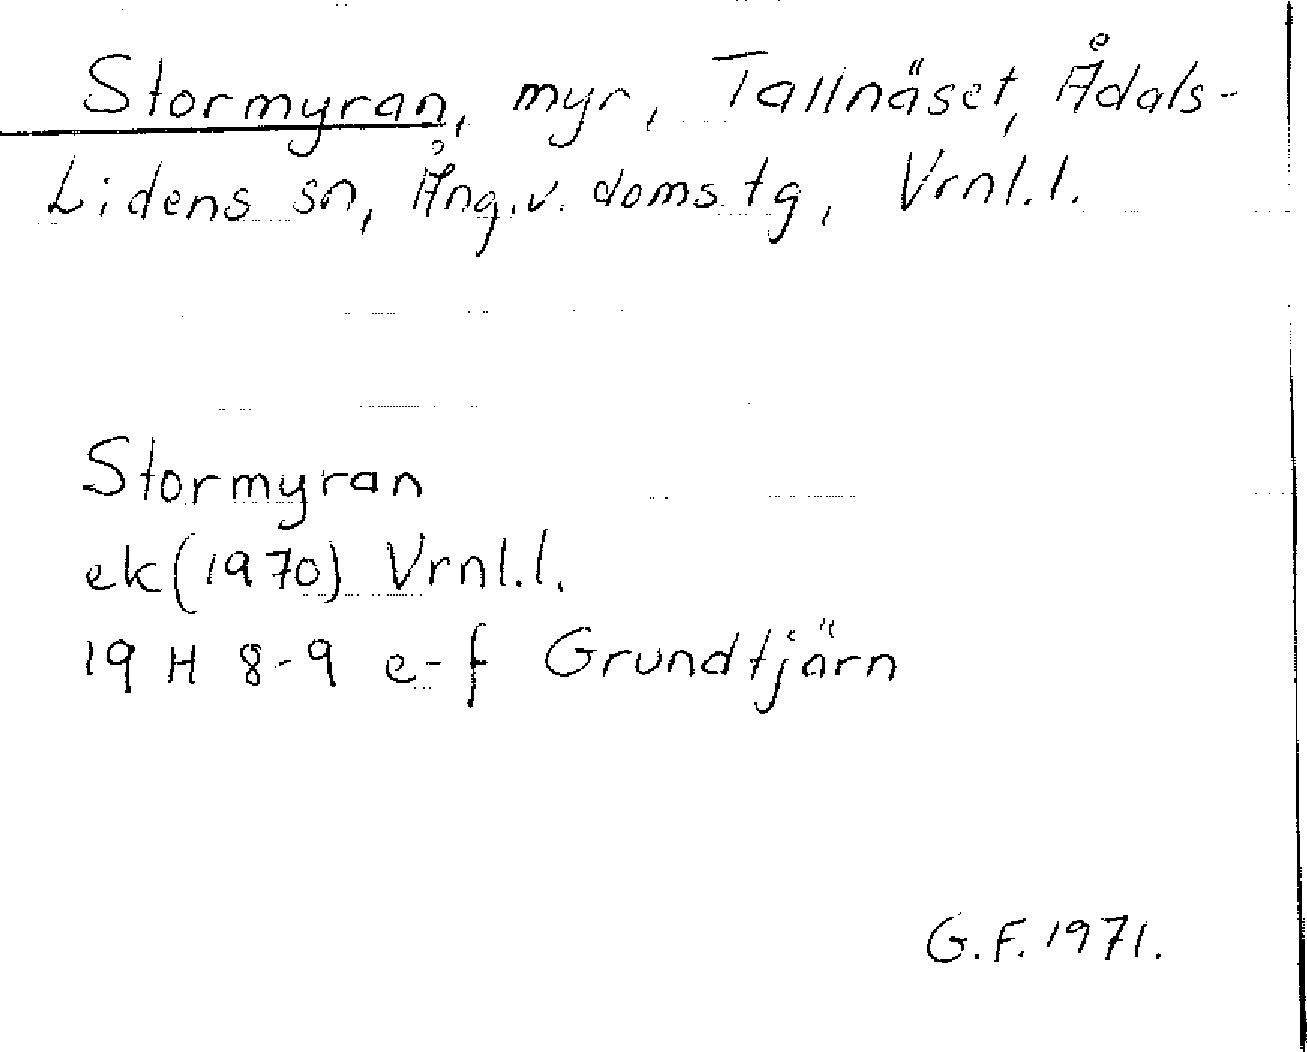 Stormyran, myr, Tallnäset, Ådals-
Lidens sn, Ång.v. doms.tg, Vrnl.l.
Stormyran
ek(1970) Vrnl.l.
19 H 8-9 e-f Grundtjärn
G.F. 1971.